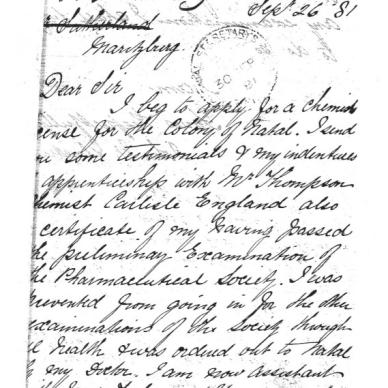 Sept 26 '81
Sutherland
Maritzburg
SECRETARY
30
81
Dear Sir
I beg to apply for a chemist
cense for the Colony of Natal. I send
some testimonials & my indentures
apprenticeship with Mr Thompson
hemist Carlisle England also
certificate of my having passed
he preliminary Examination of
he Pharmaceutical Society. I was
revented from going in for the other
examinations of the Society through
ll health & was ordered out to Natal
my Doctor. I am now Assistant